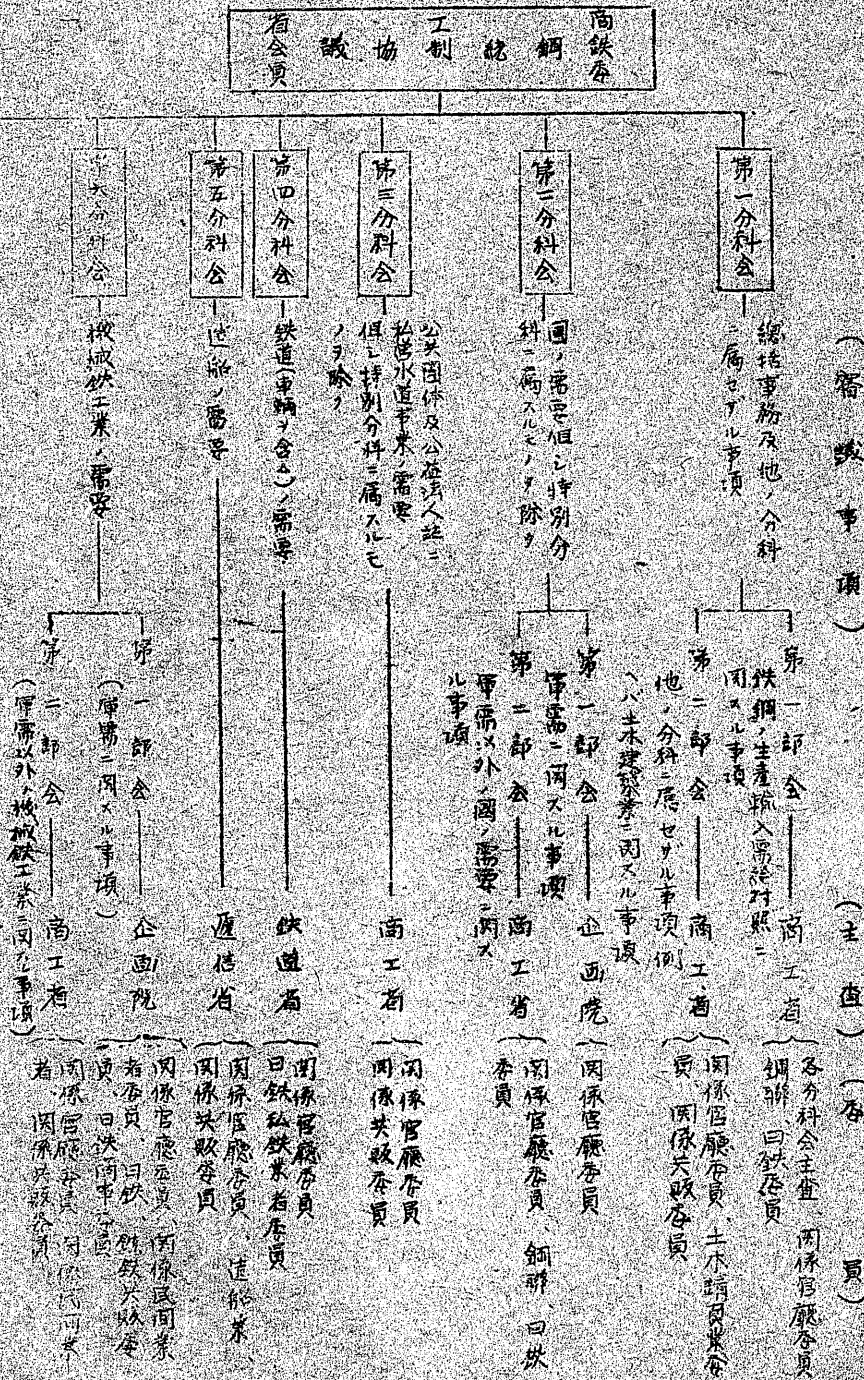 (審議事項)
(主査)
(委員)
商工省
鉄鋼統制協議会
委員
第一分科会
總括事務及他ノ分科
ニ属セザル事項
第一部会
鉄鋼ノ生産輸入需給対照ニ
関スル事項
商工省
各分科会主査、関係官廳委員
鋼聯、日鉄委員
第二部会
他ノ分科ニ属セザル事項例
ヘバ土木建築業ニ関スル事項
商工省
関係官廳委員、土木請負業委
員、関係共販委員
第二分科会
國ノ需要但シ特別分
科ニ属スルモノヲ除ク
第一部会
軍需ニ関スル事項
企画院
関係官廳委員
第二部会
軍需以外ノ國ノ需要ニ関ス
ル事項
商工省
関係官廳委員、鋼聯、日鉄
委員
第三分科会
公共団体及公益法人並ニ
私営水道事業ノ需要
但シ特別分科ニ属スルモ
ノヲ除ク
商工省
関係官廳委員
関係共販委員
第四分科会
鉄道(車輌ヲ含ム)ノ需要
鉄道省
関係官廳委員
日鉄私鉄業者委員
第五分科会
造船ノ需要
逓信省
関係官廳委員、造船業
関係共販委員
第六分科会
機械鉄工業ノ需要
第一部会
(軍需ニ関スル事項)
企画院
関係官廳委員、関係民間業
者委員、日鉄、銑鉄共販委
員、日鉄商事委員
第二部会
(軍需以外ノ機械鉄工業ニ関スル事項)
商工省
関係官廳委員、関係民間業
者、関係共販委員